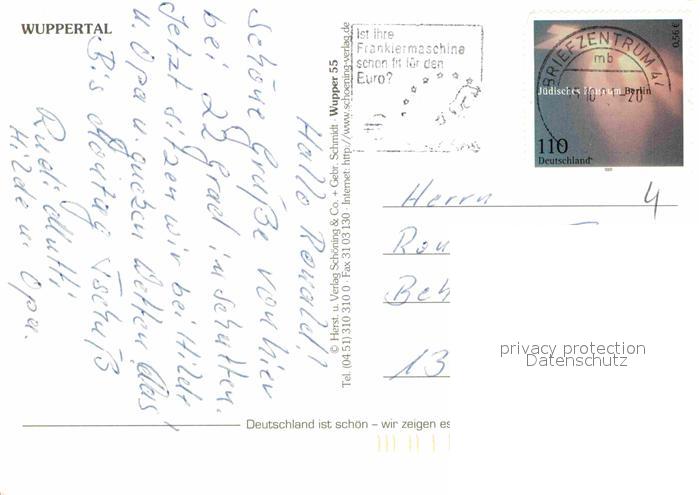 WUPPERTAL
Hallo Ronald!
Schöne Grüße von hier
bei 22 Grad im Schatten.
Jetzt sitzen wir bei Hilde
u. Opa u. gucken Wetten das!
Bis Montag Tschüß
Rudi Mutti
Hilde u. Opa.
© Herst. u. Verlag Schöning & Co. + Gebr. Schmidt · Wupper 55
Tel. (04 51) 310 310 0 · Fax 31 03 130 · Internet: http://www.schoening-verlag.de
Ist ihre
Frankiermaschine
schon fit für den
Euro?
BRIEFZENTRUM 4
mb
Jüdisches Museum Berlin
0,56 €
110
Deutschland
Herrn 4
Ron
Beh
13
privacy protection
Datenschutz
Deutschland ist schön – wir zeigen es